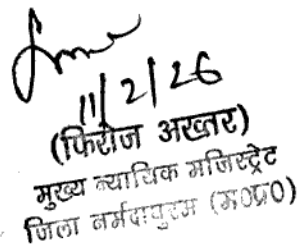 11/2/26
(फिरोज अख्तर)
मुख्य न्यायिक मजिस्ट्रेट
जिला नर्मदापुरम (म०प्र०)